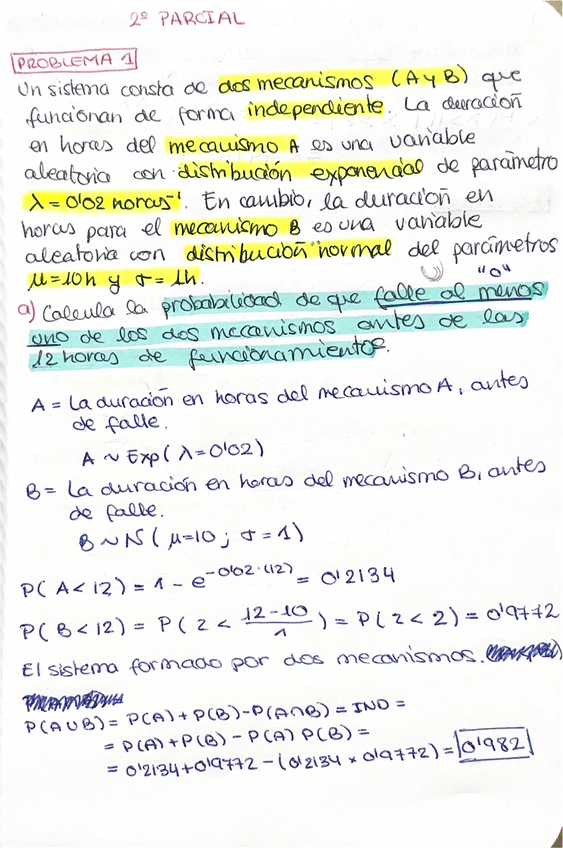 2º PARCIAL
PROBLEMA 1
Un sistema consta de dos mecanismos (A y B) que
funcionan de forma independiente. La duración
en horas del mecanismo A es una variable
aleatoria con distribución exponencial de parámetro
λ = 0'02 horas⁻¹. En cambio, la duración en
horas para el mecanismo B es una variable
aleatoria con distribución normal del parámetros
μ=10h y σ=1h.
U "o"
a) Calcula la probabilidad de que falle al menos
uno de los dos mecanismos antes de las
12 horas de funcionamiento.
A = La duración en horas del mecanismo A, antes
de falle.
A ~ Exp(λ=0'02)
B = La duración en horas del mecanismo B, antes
de falle.
B ~ N(μ=10; σ=1)
P(A<12) = 1 - e^-0'02·(12) = 0'2134
P(B<12) = P(z < 12-10/1) = P(z<2) = 0'9772
El sistema formado por dos mecanismos.
P(A∪B) = P(A) + P(B) - P(A∩B) = IND =
= P(A) + P(B) - P(A) P(B) =
= 0'2134 + 0'9772 - (0'2134 × 0'9772) = 0'982